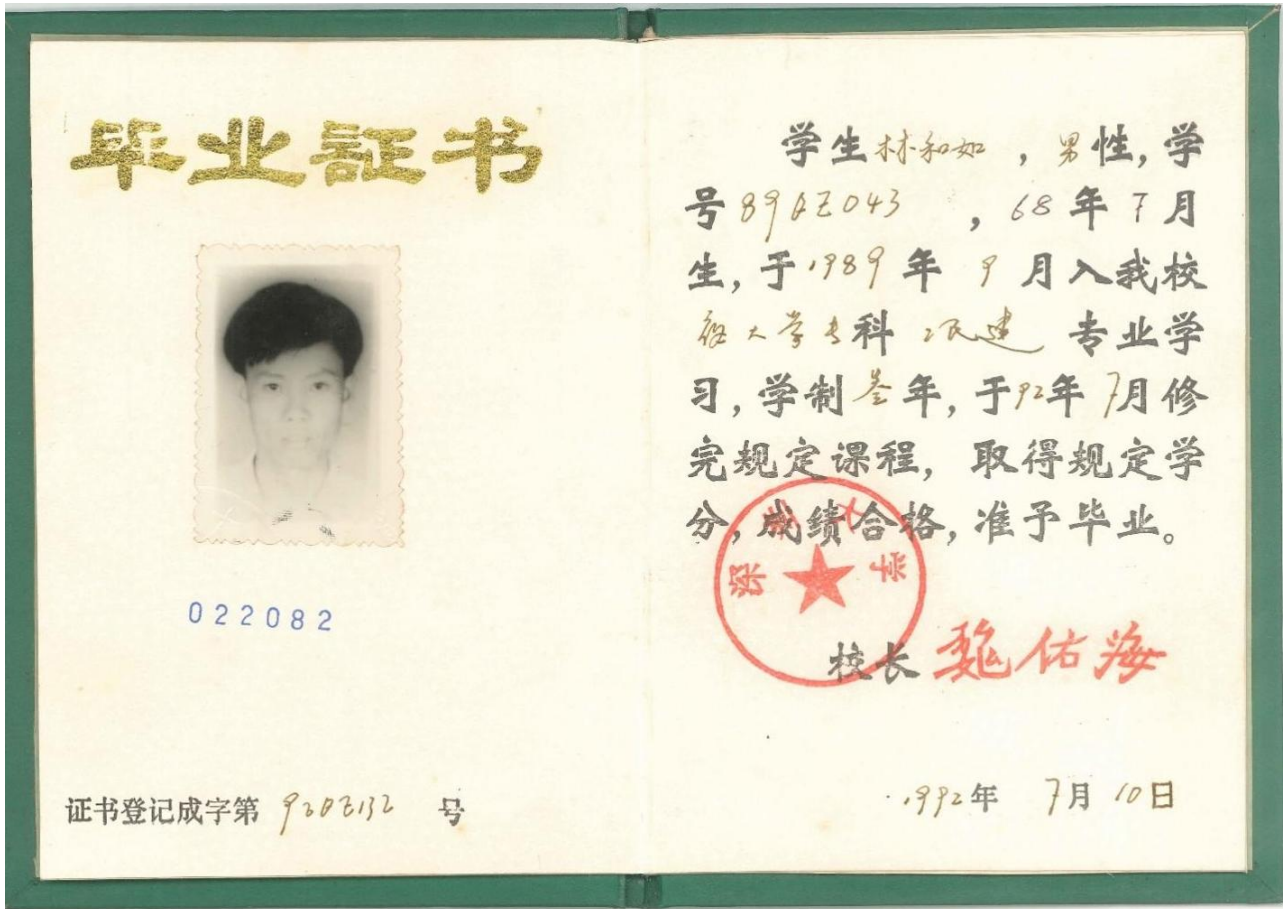 毕业証书
022082
证书登记成字第 920Z132 号
学生林和如，男性，学
号89AZ043，68年7月
生，于1989年9月入我校
夜大学专科 工民建 专业学
习，学制叁年，于92年7月修
完规定课程，取得规定学
分，成绩合格，准予毕业。
深圳大学
校长 魏佑海
1992年7月10日